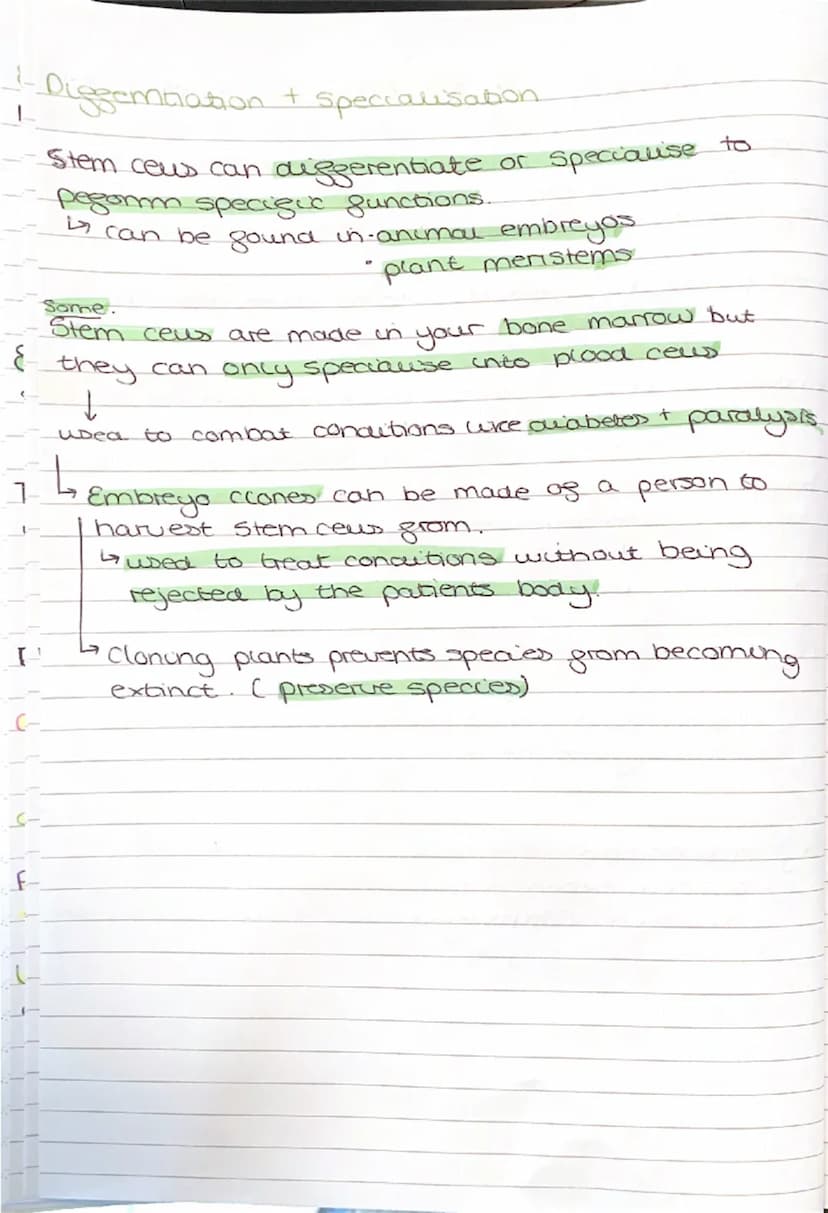 Differentiation + specialisation
Stem cells can differentiate or specialise to
peform specific functions.
↳ can be found in · animal embreyos
· plant meristems
Some.
Stem cells are made in your bone marrow but
they can only specialise into blood cells
↓
used to combat conditions like diabetes + paralysis
↳ Embreyo clones can be made of a person to
harvest stem cells from.
↳ used to treat conditions without being
rejected by the patients body.
↳ Cloning plants prevents species from becoming
extinct. (preserve species)